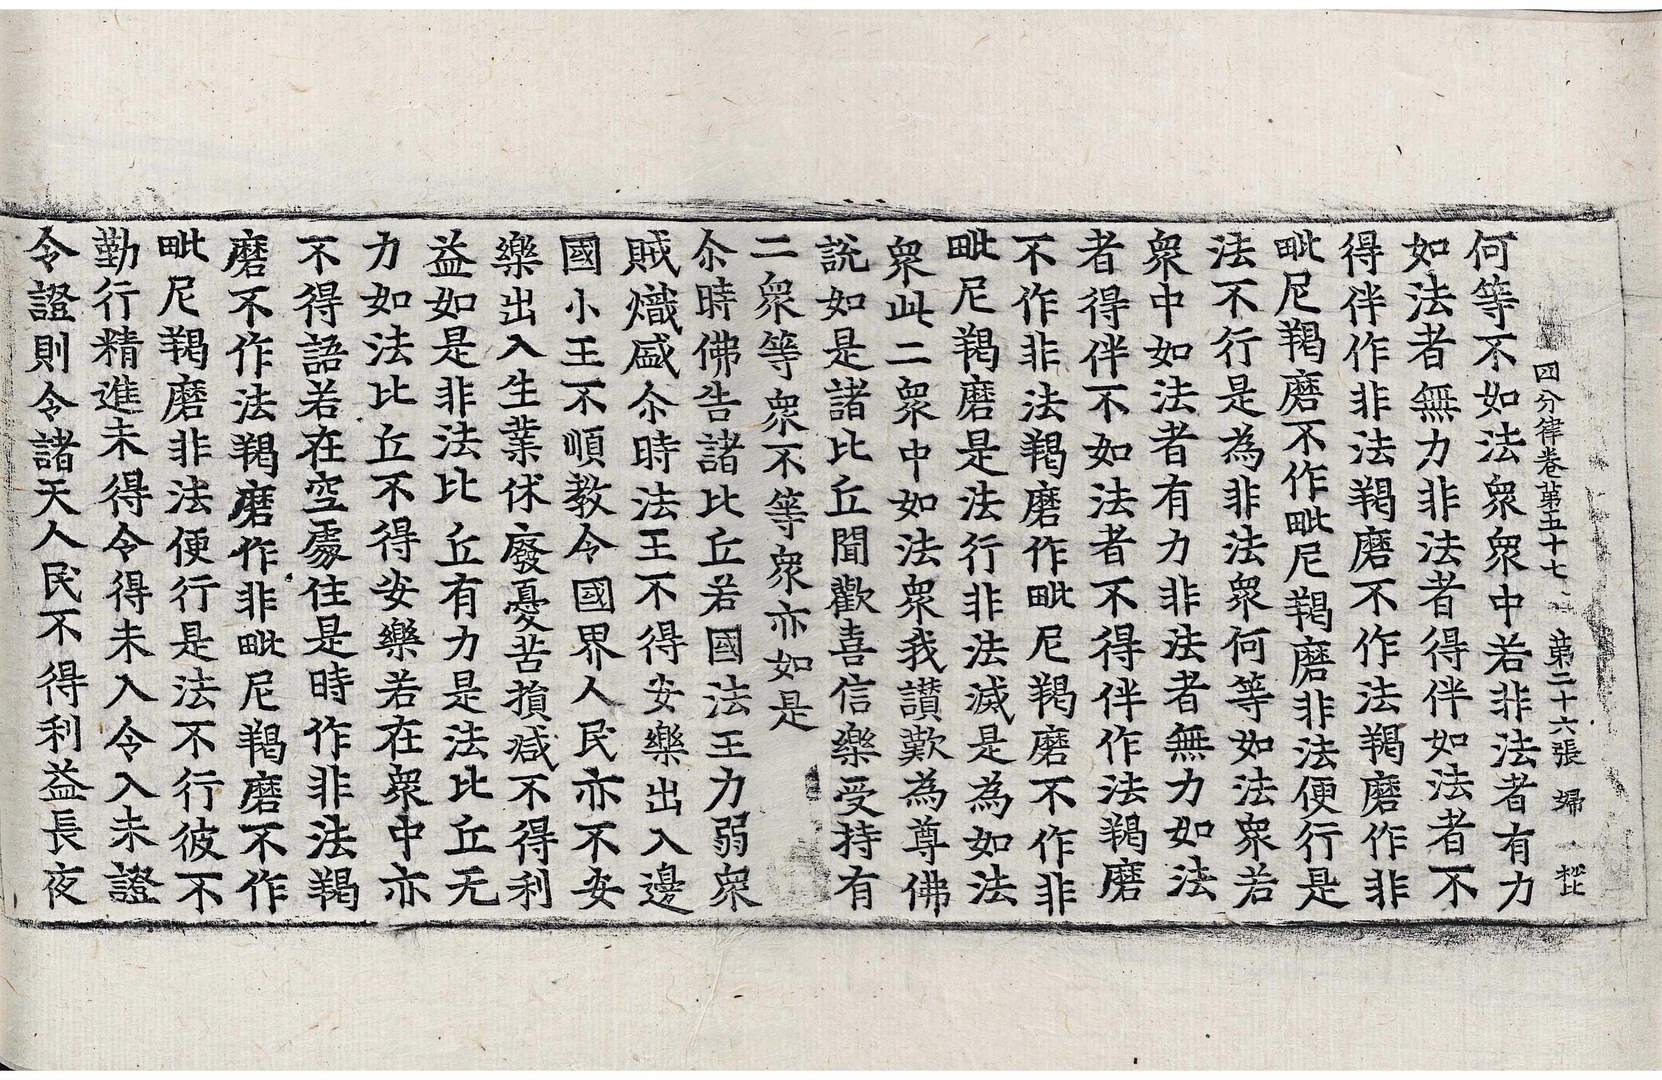 四分律卷第五十七 第二十六張 婦
何等不如法衆衆中若非法者有力
如法者無力非法者得伴如法者不
得伴作非法羯磨不作法羯磨作非
毗尼羯磨不作毗尼羯磨非法便行是
法不行是為非法衆何等如法衆若
衆中如法者有力非法者無力如法
者得伴不如法者不得伴作法羯磨
不作非法羯磨作毗尼羯磨不作非
毗尼羯磨是法行非法滅是為如法
衆此二衆中如法衆我讃歎為尊佛
說如是諸比丘聞歡喜信樂受持有
二衆等衆不等衆亦如是
尒時佛告諸比丘若國法王力弱衆
賊熾盛尒時法王不得安樂出入邊
國小王不順教令國界人民亦不安
樂出入生業休廢憂苦損減不得利
益如是非法比丘有力是法比丘无
力如法比丘不得安樂若在衆中亦
不得語若在空處住是時作非法羯
磨不作法羯磨作非毗尼羯磨不作
毗尼羯磨非法便行是法不行彼不
勤行精進未得令得未入令入未證
令證則令諸天人民不得利益長夜